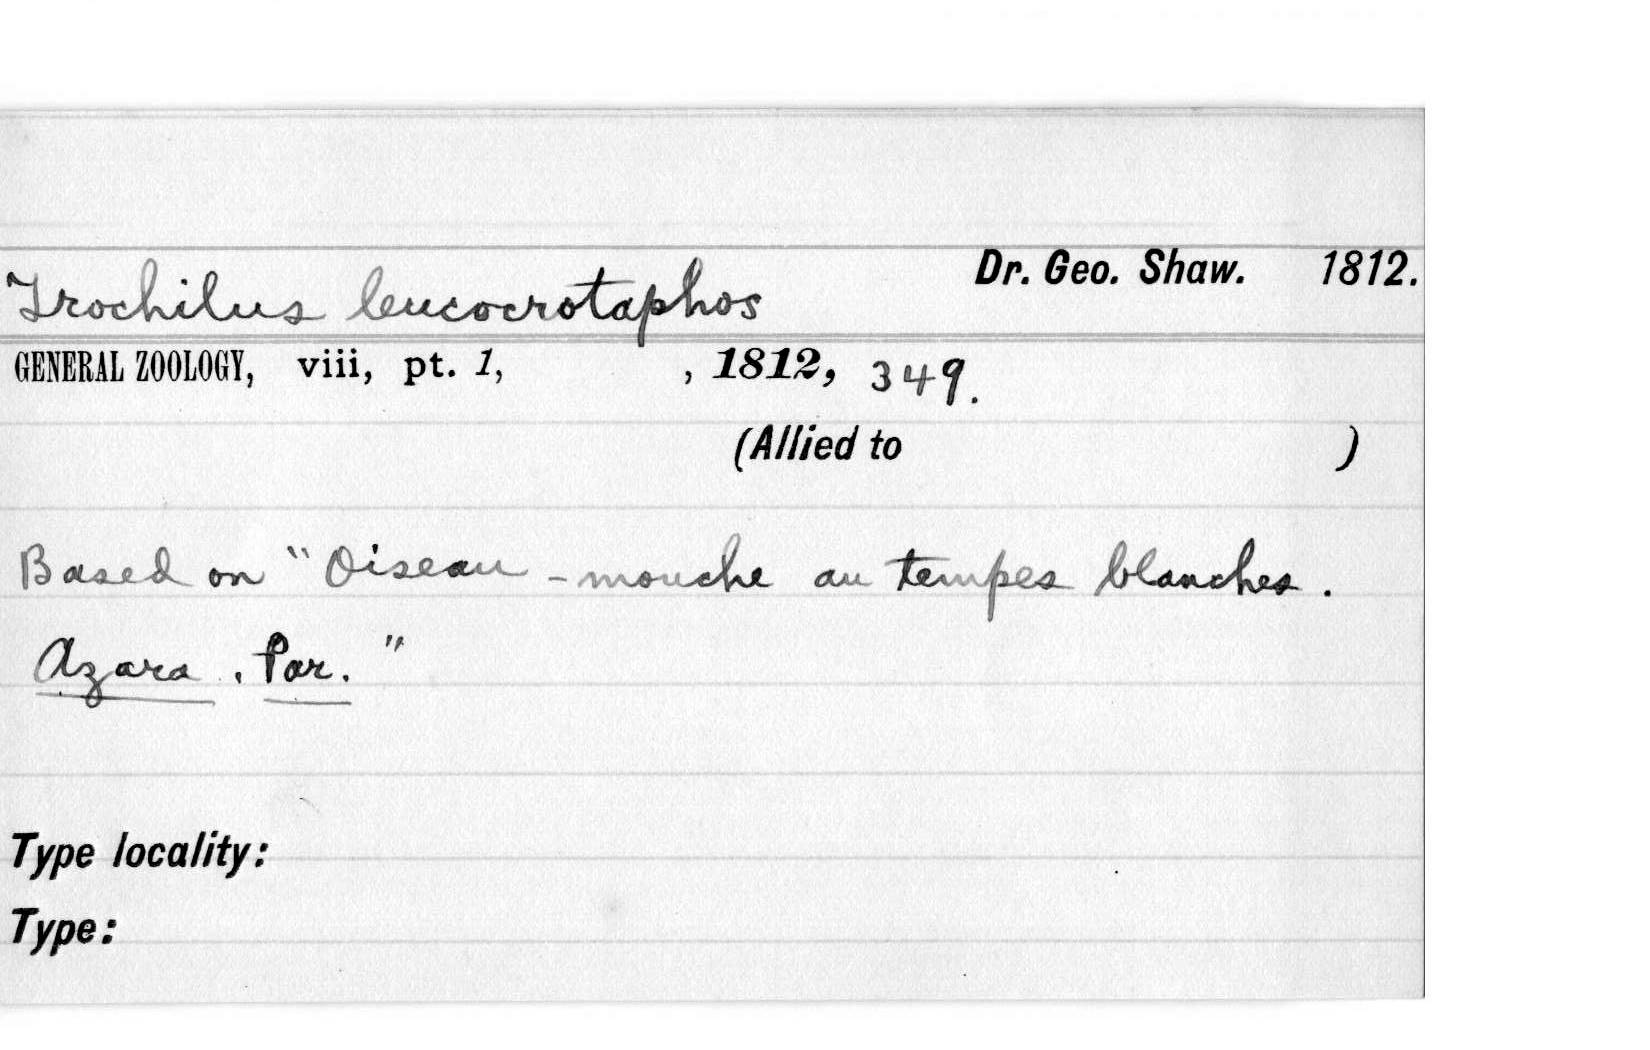 Dr. Geo. Shaw. 1812.
Trochilus leucocrotaphos
GENERAL ZOOLOGY, viii, pt. 1, , 1812, 349.
(Allied to )
Based on "Oiseau-mouche au tempes blanches.
Azara, Par."
Type locality:
Type: